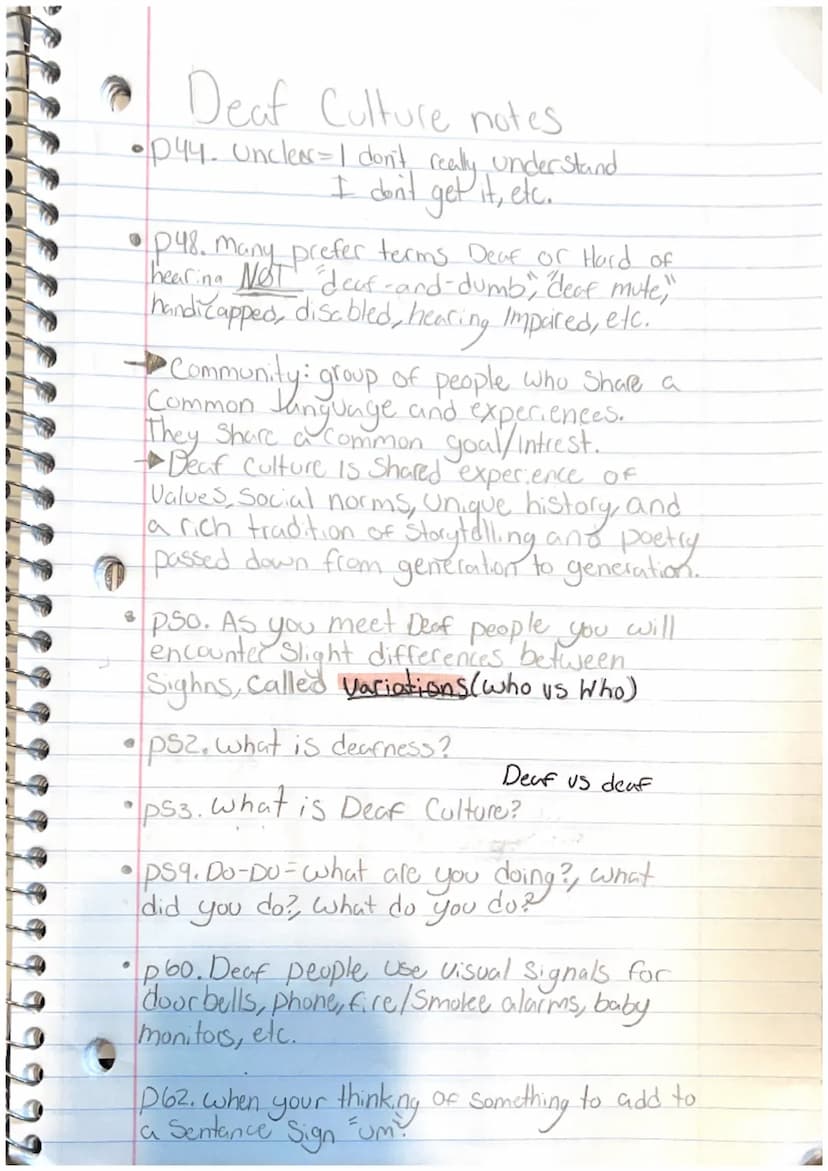 Deaf Culture notes
• p44. Unclear = I don't really understand
I don't get it, etc.
• p48. Many prefer terms Deaf or Hard of
hearing NOT "deaf-and-dumb", "deaf mute,"
handicapped, disabled, hearing Impaired, etc.
→ Community: group of people who share a
Common language and experiences.
They share a common goal/intrest.
→ Deaf Culture is shared experience of
values, social norms, unique history, and
a rich tradition of storytelling and poetry
passed down from generation to generation.
• p50. As you meet Deaf people you will
encounter slight differences between
Sighns, called variations (who vs who)
• p52. What is deafness?
Deaf vs deaf
• p53. What is Deaf Culture?
• p59. Do-Do = what are you doing?, what
did you do?, what do you do?
• p60. Deaf people use visual signals for
doorbells, phone, fire/smoke alarms, baby
monitors, etc.
p62. When your thinking of something to add to
a sentence sign "um".